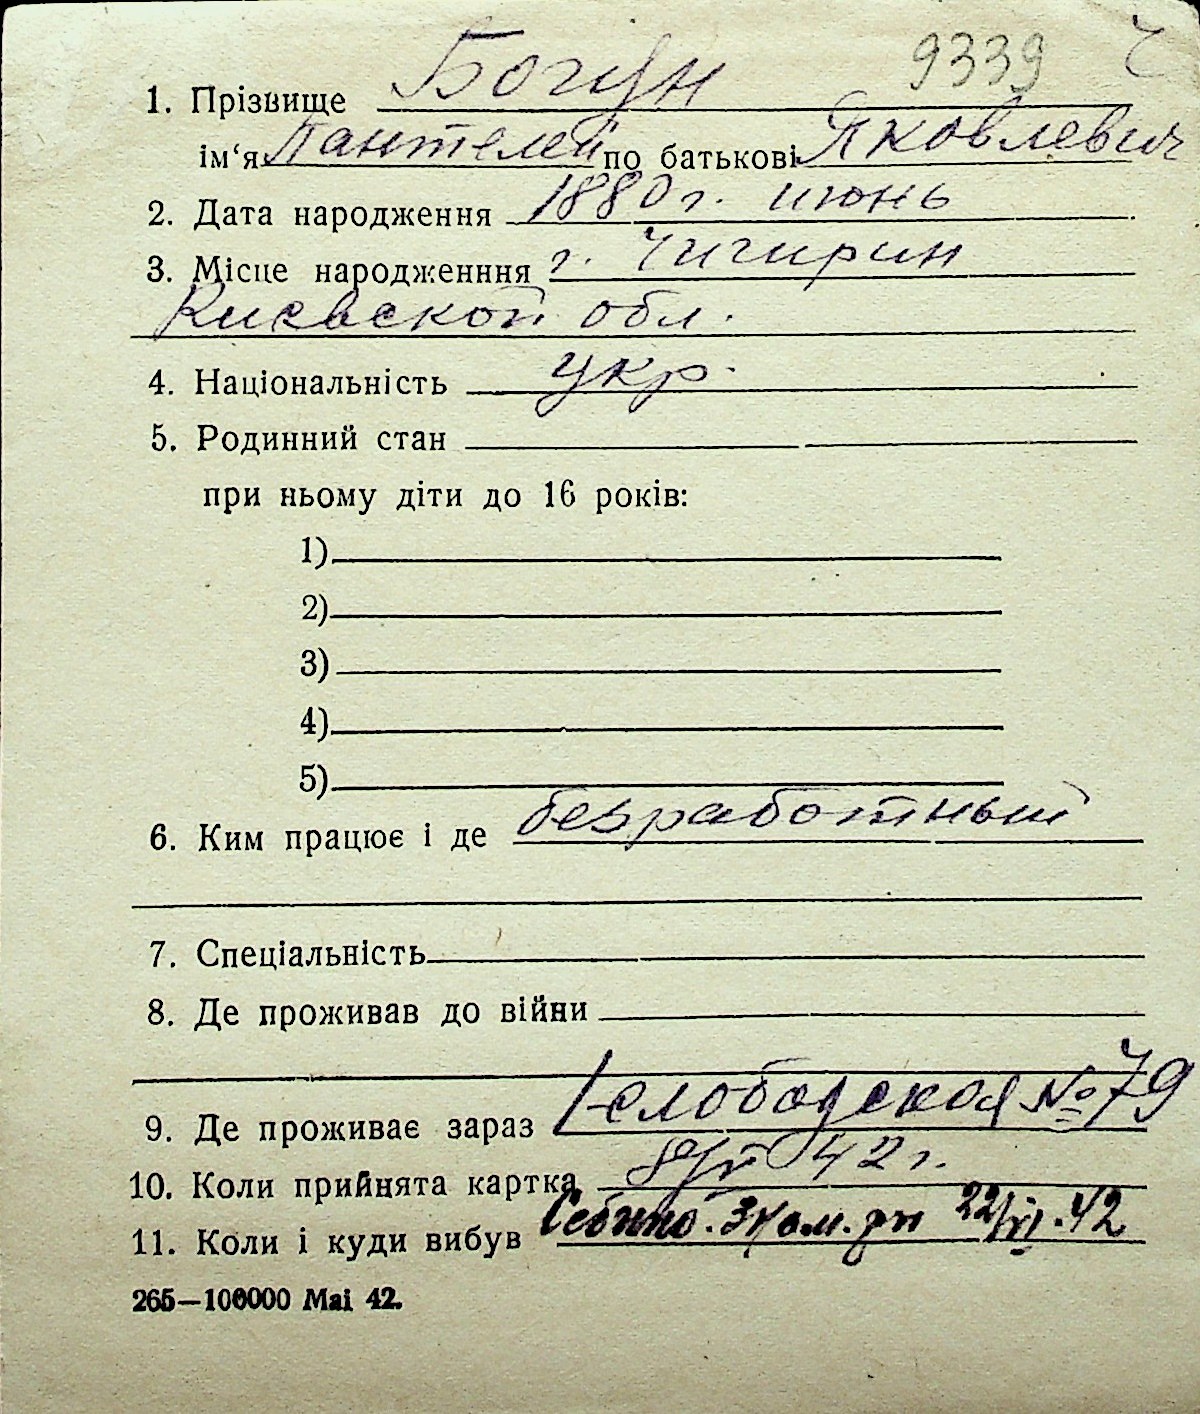 9339 ч
1. Прізвище Богун
ім‘я Пантелей по батькові Яковлевич
2. Дата народження 1880 г. июнь
3. Місце народженння г. Чигирин
Киевской обл.
4. Національність укр.
5. Родинний стан
при ньому діти до 16 років:
1)
2)
3)
4)
5)
6. Ким працює і де безработный
7. Спеціальність
8. Де проживав до війни
9. Де проживає зараз Слободская №79
10. Коли прийнята картка 42 г.
11. Коли і куди вибув 22/VI.42
265—100000 Mai 42.